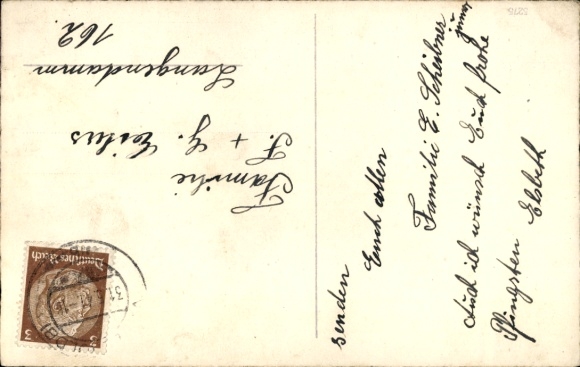 senden
Euch allen
Familie E. Scheibner
junior
Auch ich wünsch Euch frohe
Pfingsten Elsbeth
Familie
F. + G. Eilers
Langendamm
162.
Deutsches Reich
3 3
5276